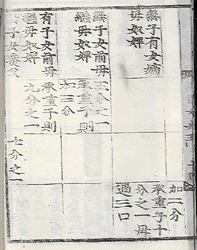 無子有女嫡
母奴婢
加二分
承重子十
分之一毋
過三口
無子女前母
繼母奴婢
五分之一
承重子則
加三分
有子女前母
繼母奴婢
承重子則
九分之一
七分之一